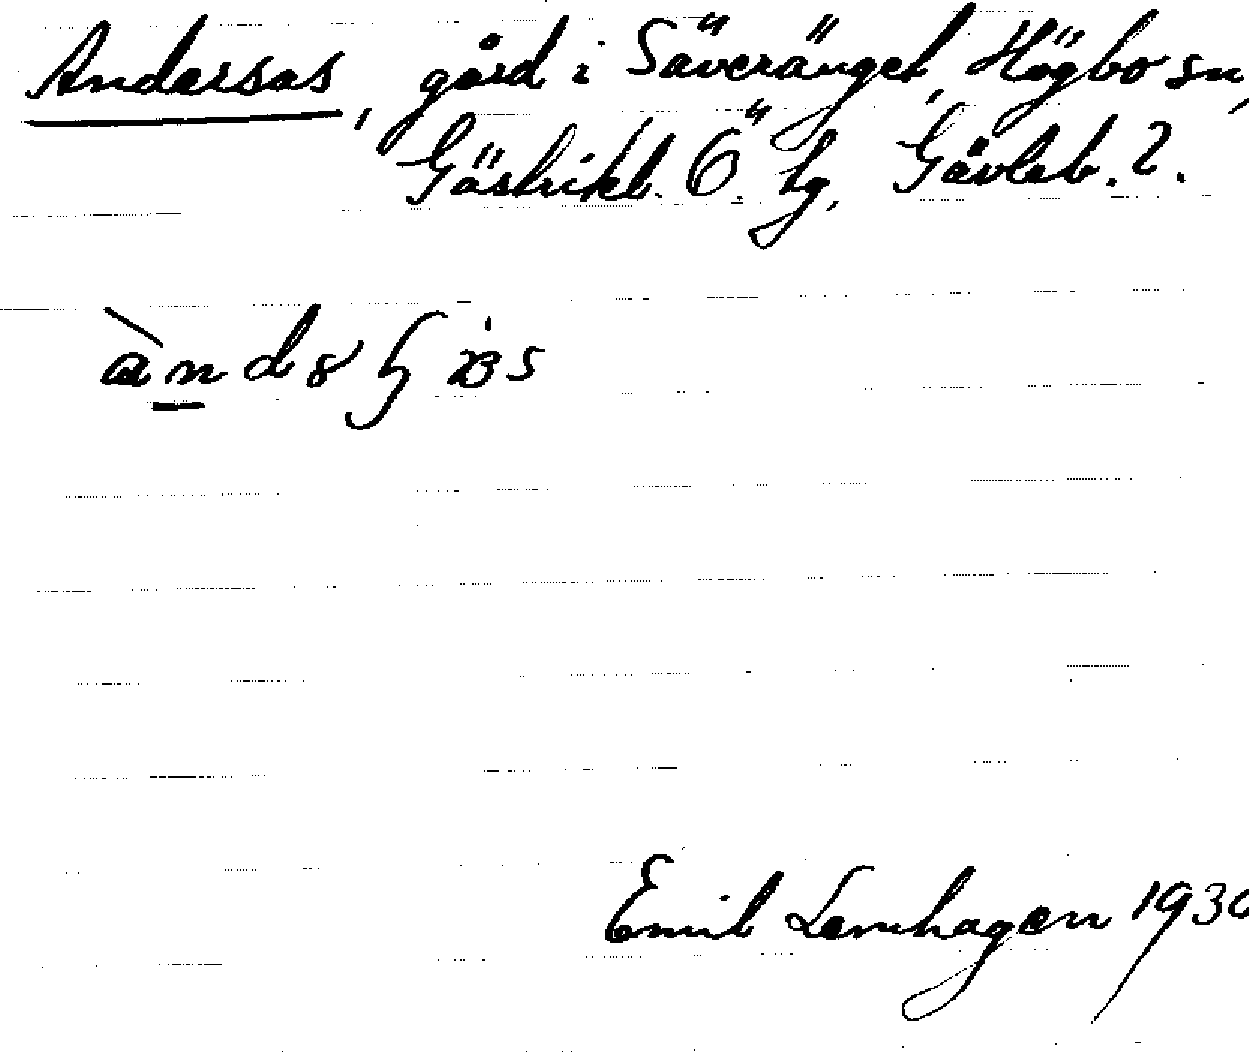 Andersas, gård i Säveränget, Högbo sn,
Gästrikl. Ö. tg, Gävleb. l.
Emil Lernhagen 1930